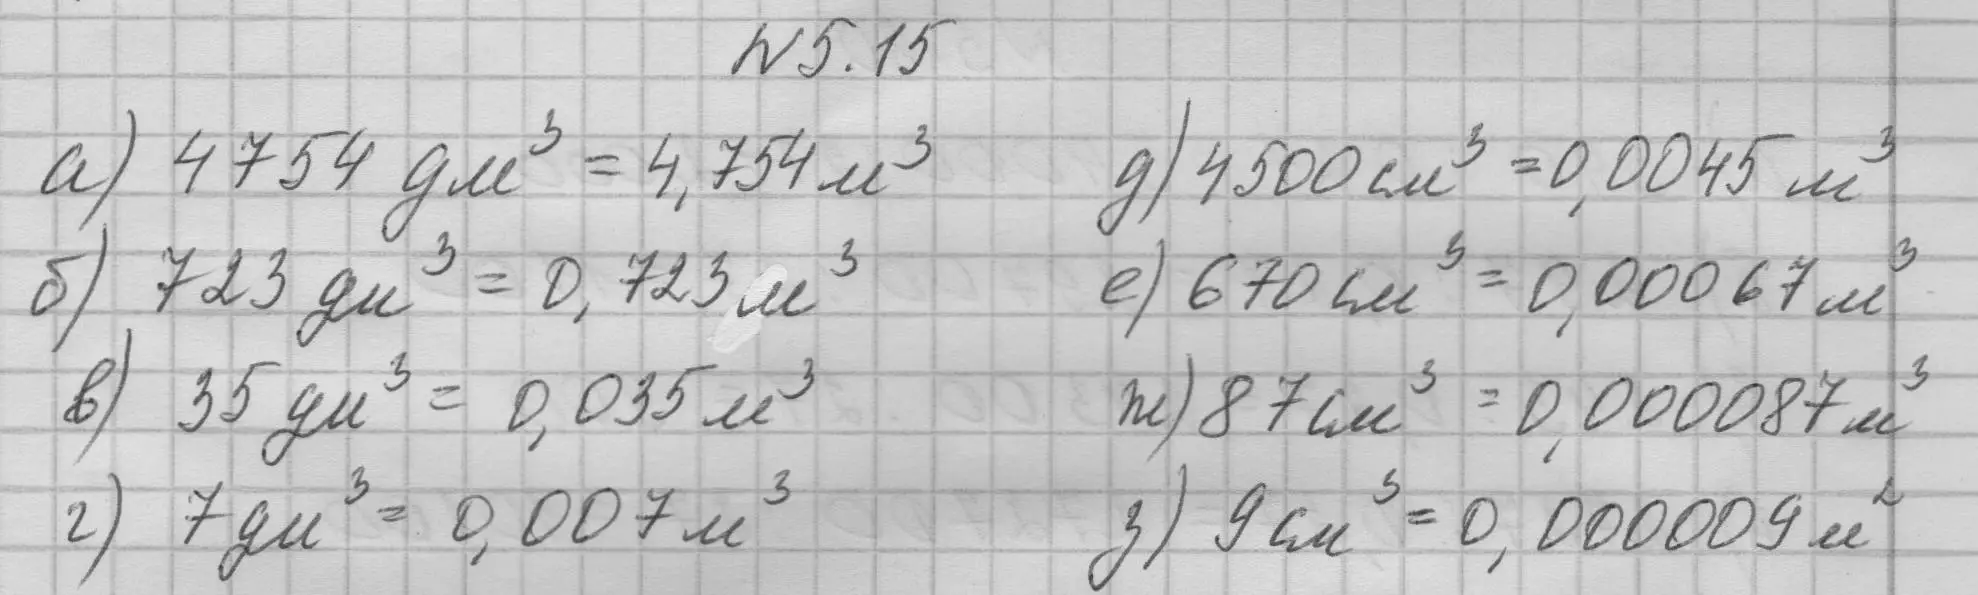 №5.15
а) 4754 дм³ = 4,754 м³
б) 723 дм³ = 0,723 м³
в) 35 дм³ = 0,035 м³
г) 7 дм³ = 0,007 м³
д) 4500 см³ = 0,0045 м³
е) 670 см³ = 0,00067 м³
ж) 87 см³ = 0,000087 м³
з) 9 см³ = 0,000009 м²